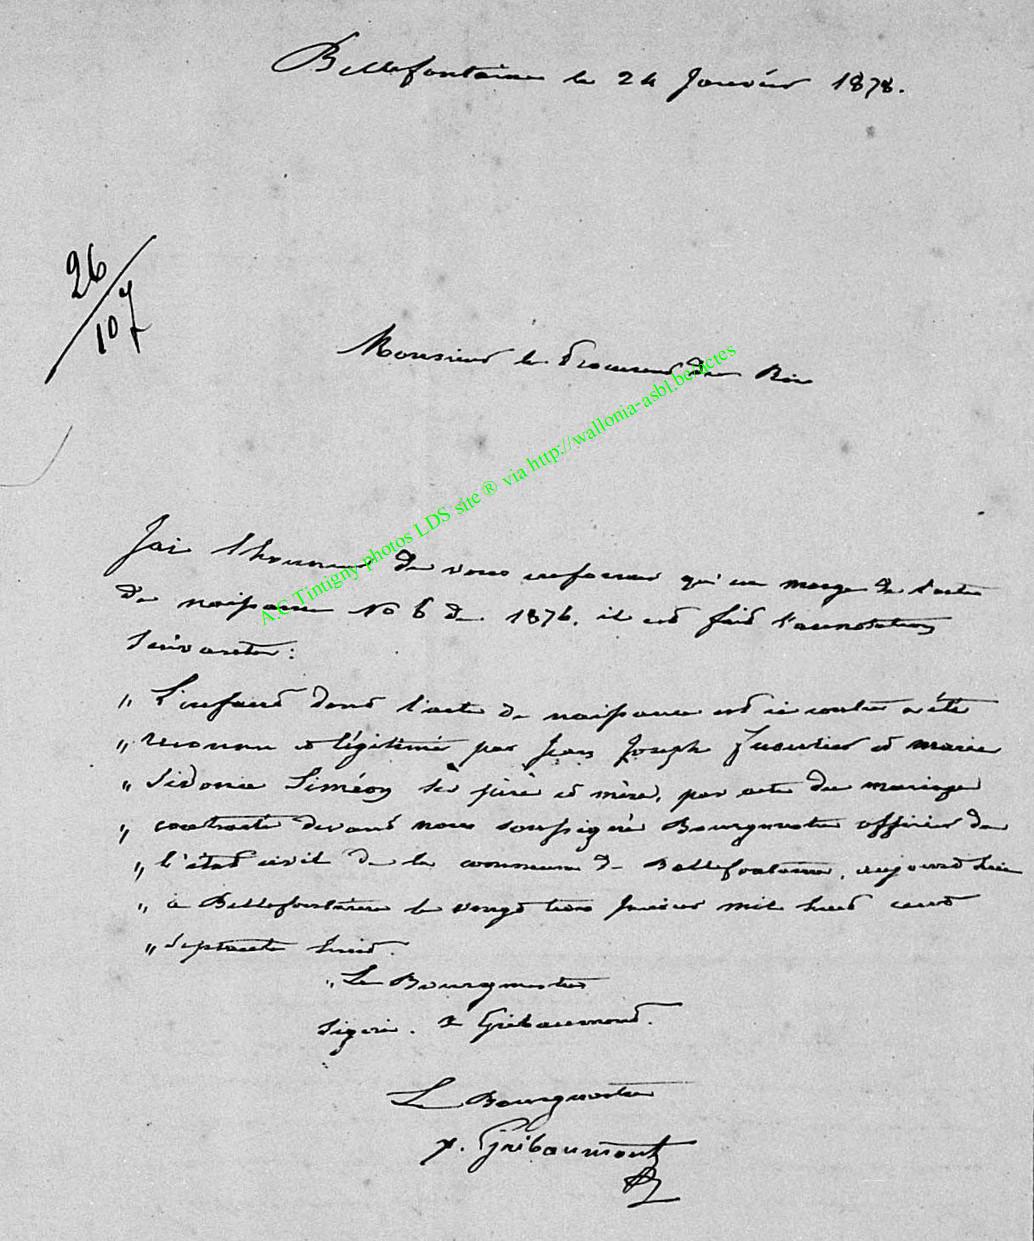 Bellefontaine le 24 Janvier 1878.
26/107
Monsieur le Procureur du Roi
A.C.Tintigny photos LDS site ® via http://wallonia-asbl.be/actes
J'ai l'honneur de vous informer qu'en marge de l'acte
de naissance No 6 de 1876, il est fait l'annotation
suivante :
" L'enfant dont l'acte de naissance est ci contre a été
" reconnu et légitimé par Jean Joseph et marie
" Sidonie Siméon ses père et mère, par acte du mariage
" contracté devant nous soussigné Bourgmestre officier de
" l'état civil de la commune de Bellefontaine, aujourd'hui
" à Bellefontaine le vingt trois Janvier mil huit cent
" septante huit.
" Le Bourgmestre
Signé. Gribaumont.
Le Bourgmestre
Gribaumont